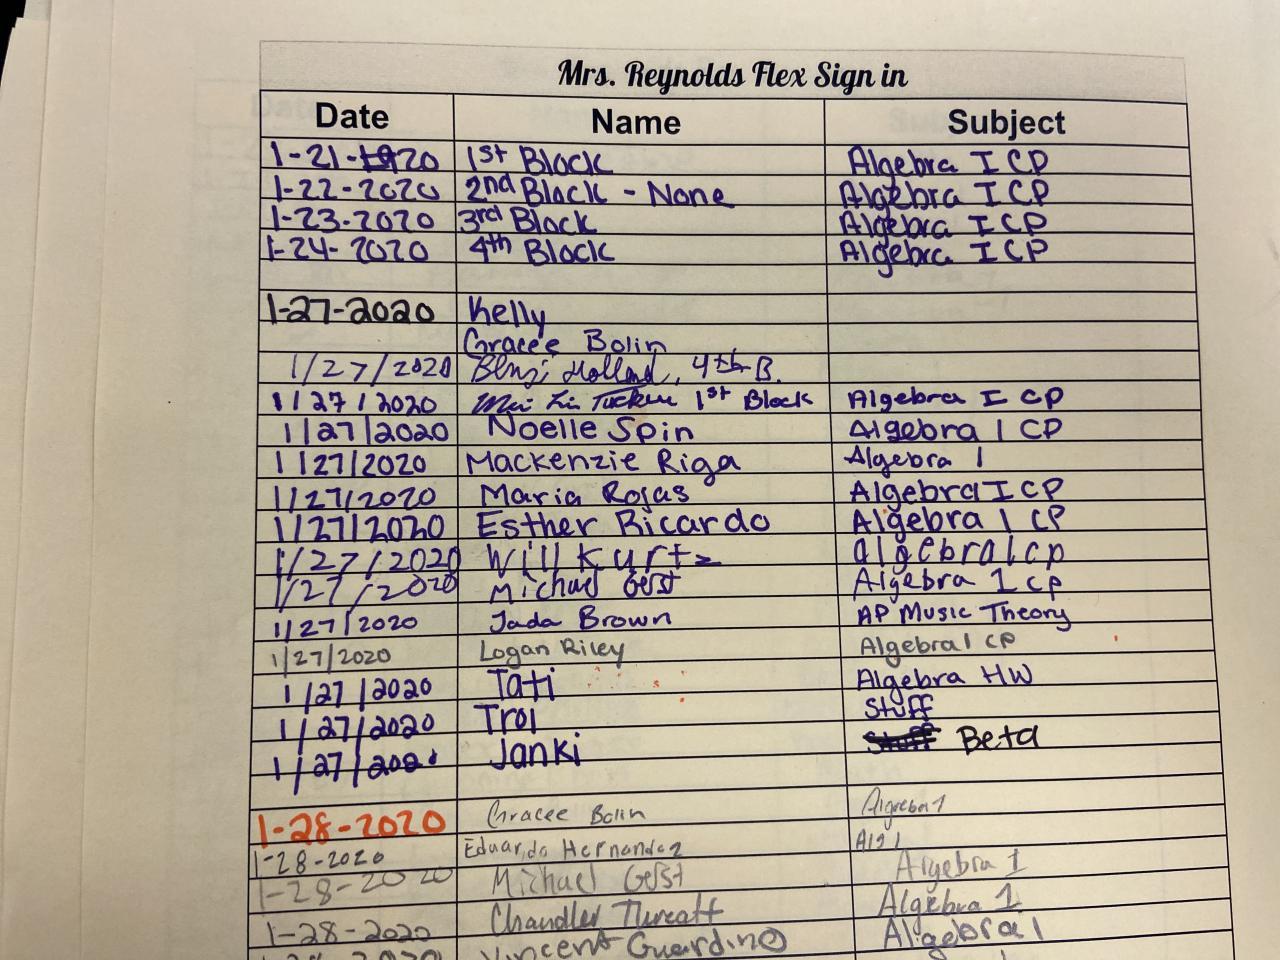 Mrs. Reynolds Flex Sign in
Date Name Subject
1-21-2020 1st Block Algebra I CP
1-22-2020 2nd Block - None Algebra I CP
1-23-2020 3rd Block Algebra I CP
1-24-2020 4th Block Algebra I CP
1-27-2020 Kelly
Gracee Bolin
1/27/2020 Holland, 4th B.
1/27/2020 Mei Lin Tucker 1st Block Algebra I CP
1/27/2020 Noelle Spin Algebra 1 CP
1/27/2020 Mackenzie Riga Algebra 1
1/27/2020 Maria Rojas Algebra I CP
1/27/2020 Esther Ricardo Algebra 1 CP
1/27/2020 Will Kurtz algebra 1 cp
1/27/2020 Michael Gerst Algebra 1 cp
1/27/2020 Jada Brown AP Music Theory
1/27/2020 Logan Riley Algebra 1 CP
1/27/2020 Tati Algebra HW
1/27/2020 Troi Stuff
1/27/2020 Janki Stuff Beta
1-28-2020 Gracee Bolin Algebra 1
1-28-2020 Eduardo Hernandez Alg 1
1-28-2020 Michael Gerst Algebra 1
1-28-2020 Chandler Threatt Algebra 1
2020 Vincent Guardino Algebra 1